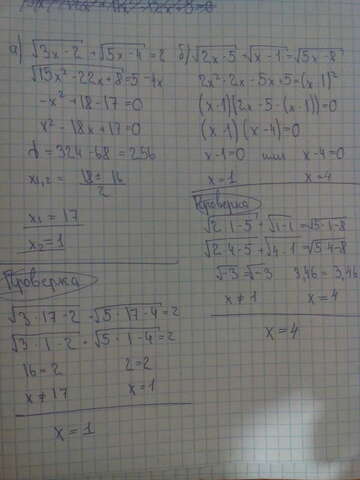 а) √3x-2 + √5x-4 = 2
√15x²-22x+8 = 5-4x
-x²+18-17=0
x²-18x+17=0
d=324-68=256
x₁,₂ = 18±16/2
x₁ = 17
x₂ = 1
Проверка
√3·17-2 + √5·17-4 = 2
√3·1-2 + √5·1-4 = 2
16=2 2=2
x≠17 x=1
x=1
б) √2x-5 + √x-1 = √5x-8
2x²-2x-5x+5=(x-1)²
(x-1)(2x-5-(x-1))=0
(x-1)(x-4)=0
x-1=0 или x-4=0
x=1 x=4
Проверка
√2·1-5 + √1-1 = √5·1-8
√2·4-5 + √4-1 = √5·4-8
√-3=√-3 3,46=3,46
x≠1 x=4
x=4